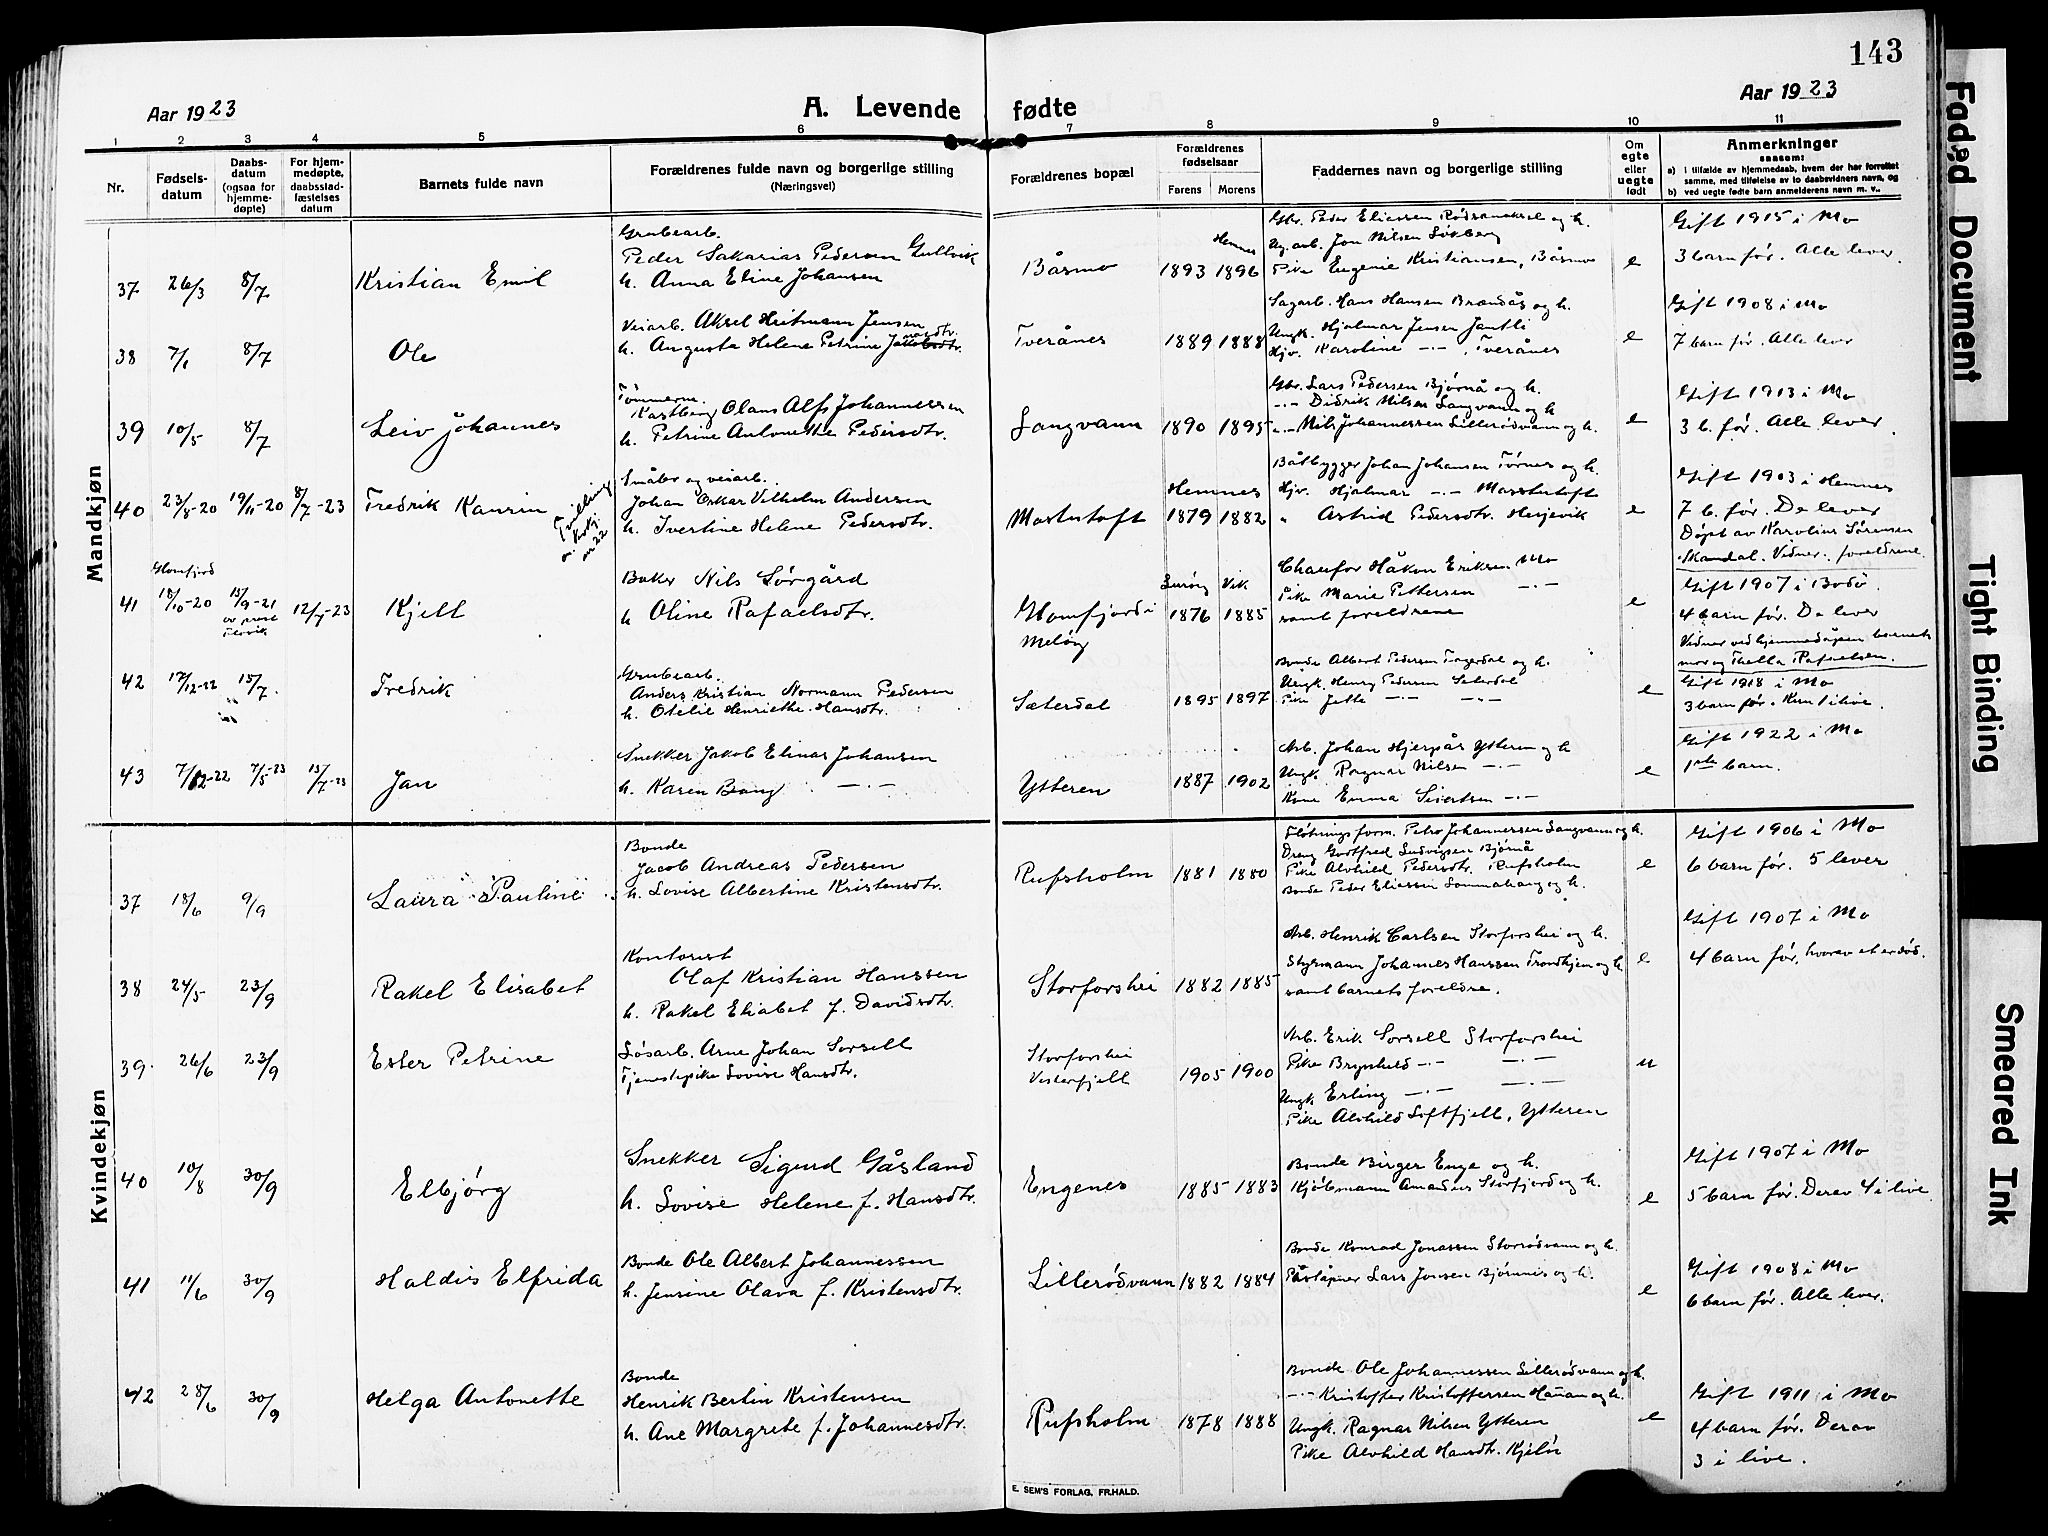 143
Aar 1923
A. Levende fødte
Aar 1923
1 2 3 4 5 6 7 8 9 10 11
Nr.
Fødsels-
datum
Daabs-
datum
(ogsaa for
hjemme-
døpte)
For hjem-
medøpte,
daabsstad-
fæstelses
datum
Barnets fulde navn
Forældrenes fulde navn og borgerlige stilling
(Næringsvei)
Forældrenes bopæl
Forældrenes
fødselsaar
Farens Morens
Faddernes navn og borgerlige stilling
Om
egte
eller
uegte
født
Anmerkninger
saasom:
a) i tilfælde av hjemmedaab, hvem der har forrettet
samme, med tilføielse av to daabsvidners navn, og
b) ved uegte fødte barn anmelderens navn m. v.
Mandkjøn
37 26/3 8/7 Kristian Emil
Grubearb.
Peder Sakarias Pedersen Gullvik
h. Anna Eline Johansen
Båsmo
Hemnes
1893 1896
Gbr. Peder Eliassen Rødsanaksel og h.
Ug. arb. Jon Nilsen Løkberg
Pike Eugenie Kristiansen, Båsmo
e
Gift 1915 i Mo
3 barn før. Alle lever.
38 7/1 8/7 Ole
Veiarb. Aksel Hritmann Jensen
h. Augusta Helene Petrine
Tverånes
1889 1888
Sagarb. Hans Hansen Brændås og h.
Ungk. Hjalmar Jensen Jantli
Hjv. Karoline -"- , Tverånes
e
Gift 1908 i Mo
7 barn før. Alle lever
39 10/5 8/7 Leiv Johannes
Tømmerm.
Kastberg Olaus Alfs Johannessen
h. Petrine Antonette Pedersdtr.
Langvann
1890 1895
Gbr. Lars Pedersen Bjørnå og h.
-"- Didrik Nilsen Langvann og h
-"- Nils Johannessen Lillerødvann og h.
e
Gift 1913 i Mo
3 b. før. Alle lever.
40 23/8-20 19/11-20 8/7-23 Fredrik Kaurin
Tvilling
m. Kvkj.
nr 22
Småbr og veiarb.
Johan Oskar Vilhelm Andersen
h. Ivertine Helene Pedersdtr.
Mastutoft
Hemnes
1879 1882
Båtbygger Johan Johansen Tørnes og h.
Hjv. Hjalmar -"- Mastutoft
" Astrid Pedersdtr. Hesjevik
e
Gift 1903 i Hemnes
7 b. før. De lever
Døpt av Karolius Sørensen
Skandal. Vidner: foreldrene
41 Glomfjord
18/10-20 15/9-21 av prest 12/7-23 Kjell
Baker Nils Sørgård
h Oline Rafaelsdtr.
Glomfjord i
Meløy
Lurøy Vik
1876 1885
Chaufør Håkon Eriksen Mo
Pike Marie Pettersen -"-
samt foreldrene
e
Gift 1907 i Bodø
4 barn før. De lever
Vidner ved hjemmedåpen barnets
mor og Thella Rafaelsen.
42 17/12-22 15/7. Fredrik
Grubearb.
Anders Kristian Normann Pedersen
h. Otelie Henriette Hansdtr.
Sæterdal
1895 1897
Bonde Albert Pedersen Fagerdal og h.
Ungk. Henry Pedersen Seterdal
Pike Jette -"- -"-
e
Gift 1918 i Mo
3 barn før. Kun 1 i live.
43 7/12-22 7/5-23 15/7-23 Jan
Snekker Jakob Elinas Johansen
h. Karen Bang -"-
Ytteren
1887 1902
Arb. Johan Hjerpås Ytteren og h
Ungk. Ragnar Nilsen -"-
Kone Emma Sivertsen -"-
e
Gift 1922 i Mo
1ste barn.
Kvindekjøn
37 18/6 9/9 Laura Pauline
Bonde
Jacob Andreas Pedersen
h. Lovise Albertine Kristensdtr.
Rufsholm
1881 1880
Fløtningsform. Petro Johannessen Langvann og h.
Dreng Godtfred Ludvigsen Bjørnå
Pike Alvhild Pedersdtr. Rufsholm
Bonde Peder Eliassen Sommahaug og h.
e
Gift 1906 i Mo
6 barn før. 5 lever
38 24/5 23/9 Rakel Elisabet
Kontorist
Olaf Kristian Hanssen
h. Rakel Eliabet f. Davidsdtr.
Storforshei
1882 1885
Arb. Henrik Carlsen Storforshei og h.
Styrmann Johannes Hanssen Trondhjem og h
samt barnets foreldre.
e
Gift 1907 i Mo
4 barn før, hvorav et er død.
39. 26/6 23/9 Ester Petrine
Løsarb. Arne Johan Sorsell
Tjenestepike Lovise Hansdtr.
Storforshei
Vesterfjell
1905 1900
Arb. Erik Sorsell Storforshei
Pike Brynhild -"- -"-
Ungk. Erling -"- -"-
Pike Alvhild Loftfjell, Ytteren
u
40 10/8 30/9 Elbjørg
Snekker Sigurd Gåsland
h. Lovise Helene f. Hansdtr.
Engenes
1885 1883
Bonde Birger Enge og h.
Kjøbmann Amadeus Storfjord og h.
e
Gift 1907 i Mo
5 barn før. Derav 4 i live
41 11/6 30/9 Haldis Elfrida
Bonde Ole Albert Johannessen
h. Jensine Olava f. Kristensdtr.
Lillerødvann
1882 1884
Bonde Konrad Jonassen Storrødvann og h.
Lars Jonsen Bjørnnes og h.
e
Gift 1908 i Mo
6 barn før. Alle lever.
42 28/6 30/9 Helga Antonette
Bonde
Henrik Bertin Kristensen
h. Ane Margrete f. Johannesdtr.
Rufsholm
1878 1888
Bonde Ole Johannessen Lillerødvann og h.
-"- Kristoffer Kristoffersen Hauan og h.
Ungk. Ragnar Nilsen Ytteren
Pike Alvhild Hansdtr. Kjelør
e
Gift 1911 i Mo
4 barn før. Derav
3 i live.
E. SEM'S FORLAG, FR.HALD.
Faded Document
Tight Binding
Smeared Ink